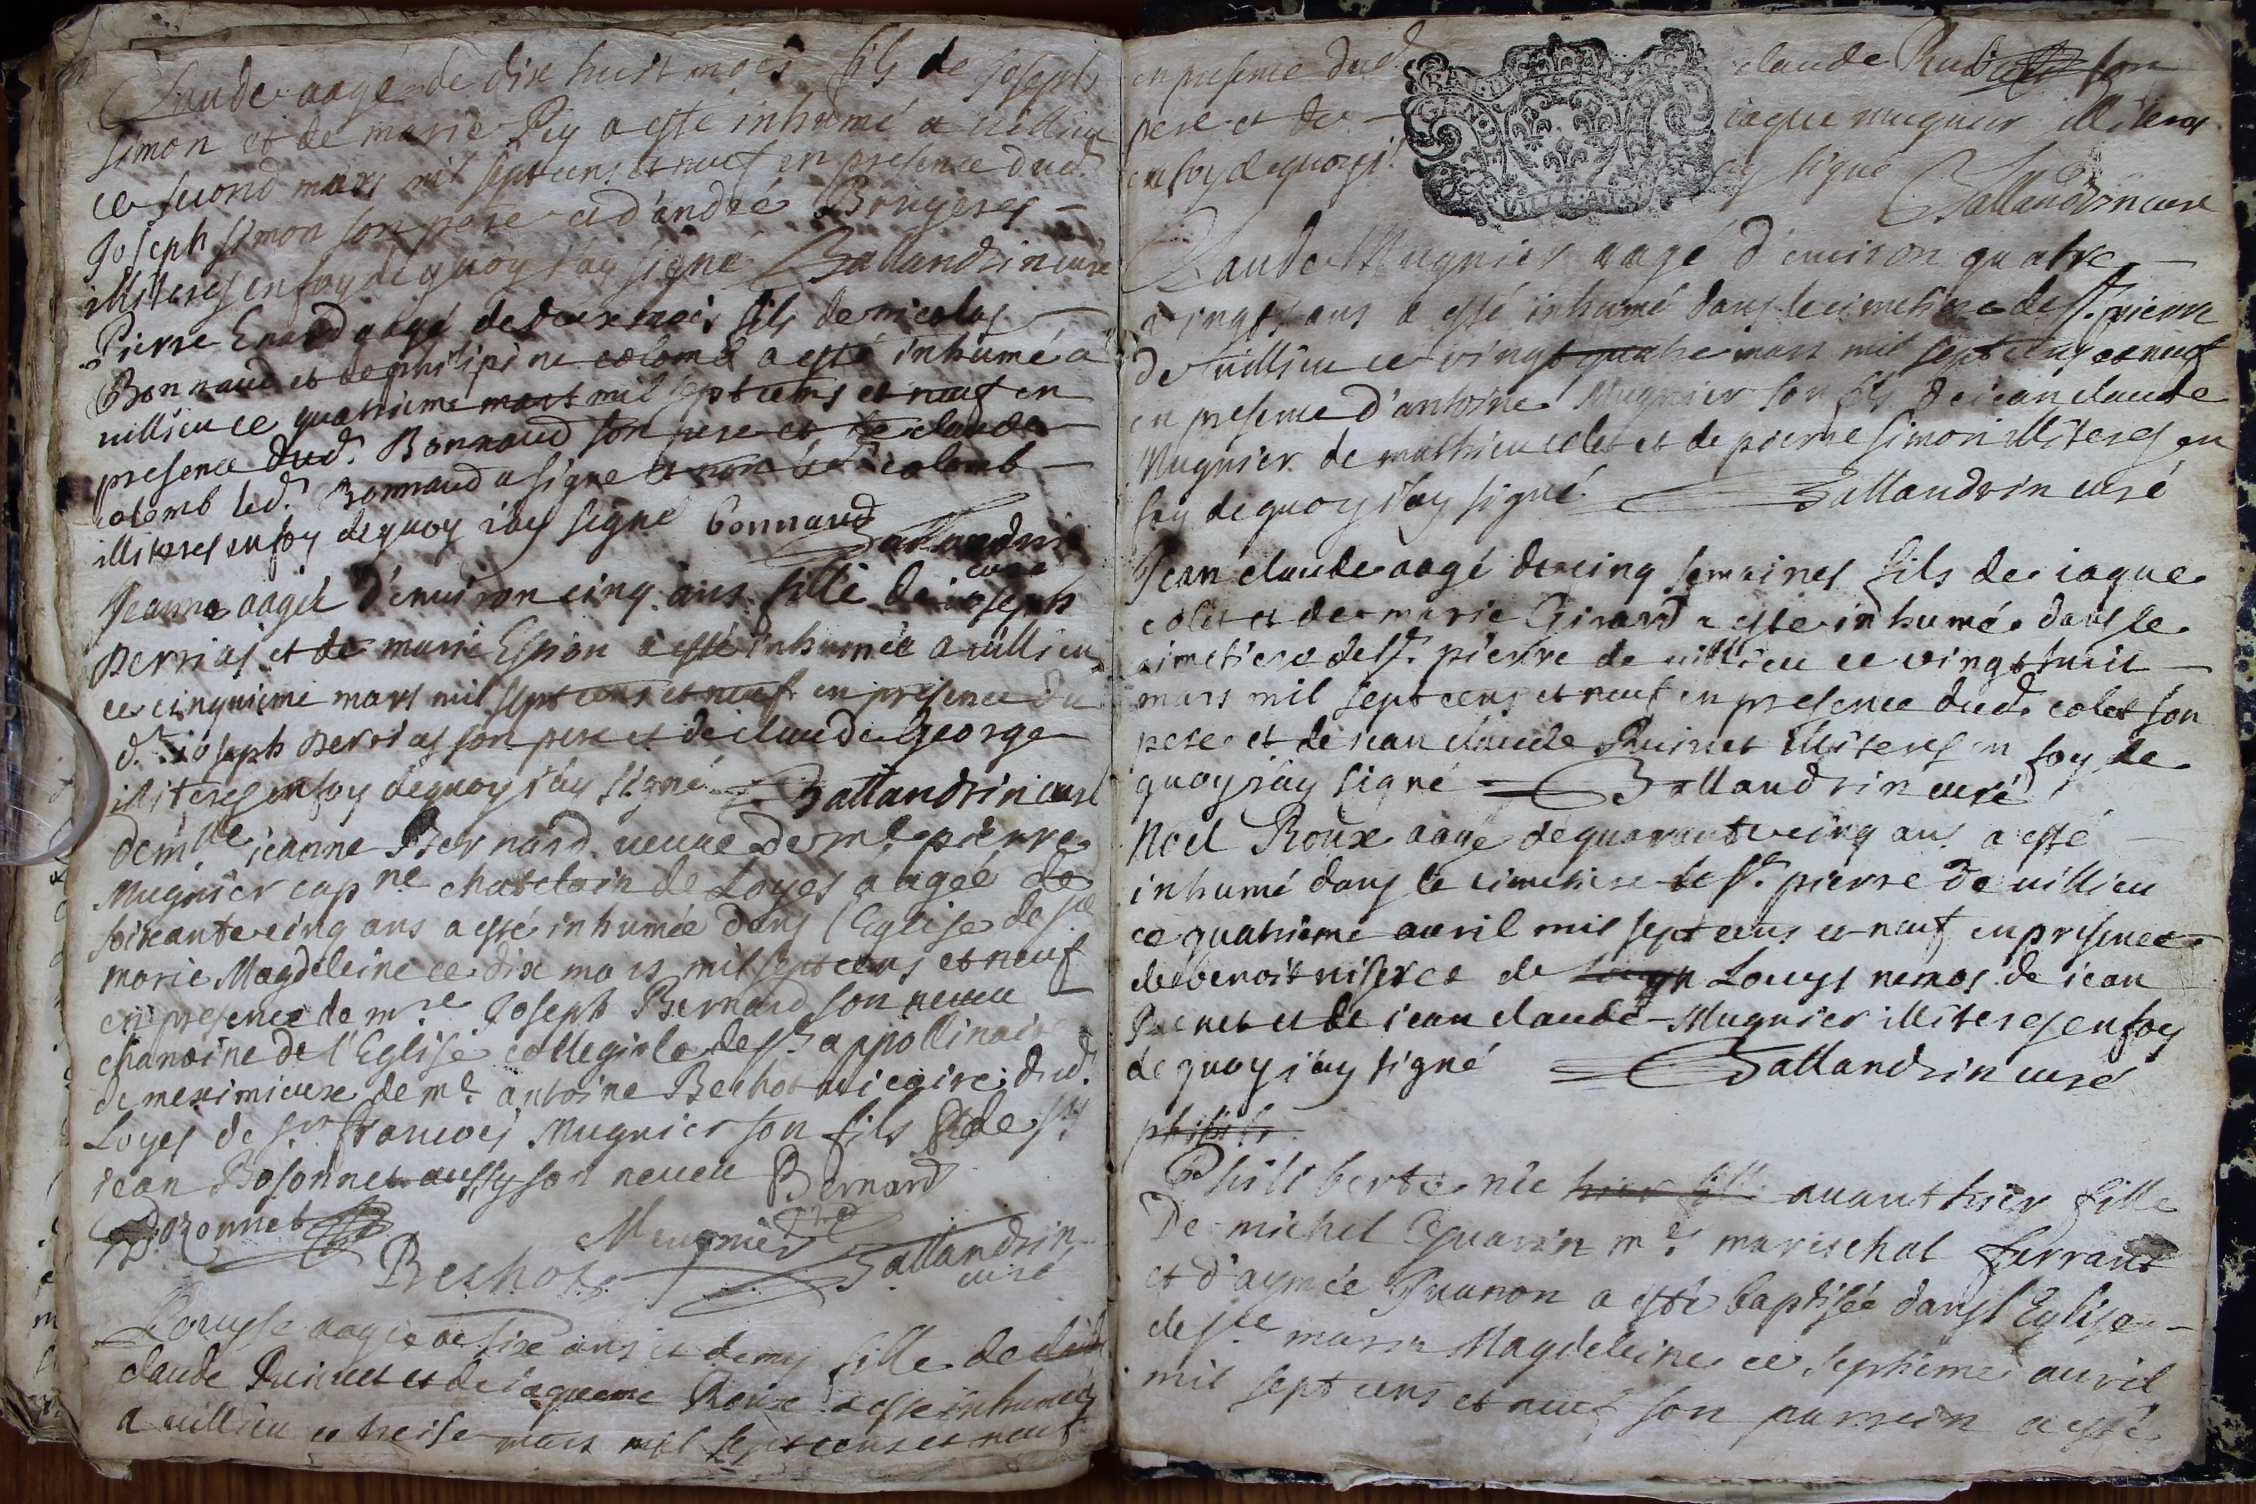 Claude aagé de dix huit mois fils de Joseph
simon et de marie Pey a esté inhumé a villieu
ce second mars mil sept cens et neuf en presence dud.
Joseph simon son pere et d'andré Brugeres
illiteres en foy de quoy j'ay signé Ballandrin curé
Pierre Enard aagé de deux mois fils de nicolas
Bonnaud et de philipine colomb a esté inhumé a
villieu ce quatrieme mars mil sept cens et neuf en
presence dud. Bonnaud son pere et de claude
colomb led. Bonnaud a signé et non led. colomb
illiteres en foy de quoy j'ay signé bonnaud
Ballandrin
curé
Jeanne aagée d'environ cinq ans fille de joseph
Berrias et de marie Espion a esté inhumée a villieu
ce cinquieme mars mil sept cens et neuf en presence du
d. joseph Berrias son pere et de claude George
illiteres en foy de quoy j'ay signé Ballandrin curé
dem.lle jeanne Bernard veuve de m.e pierre
Mugnier cap.ne chatelain de Loyes aagée de
soixante cinq ans a esté inhumée dans l'Eglise de s.te
marie Magdeleine ce dix mars mil sept cens et neuf
en presence de m.re Joseph Bernard son neveu
chanoine de l'Eglise collegiale de s.t appollinaire
de meximieux de m.e antoine Bechot dud.
Loyes de s.r francois Mugnier son fils et de s.r
jean Bosonnet aussy son neveu Bernard
Bozonnet
Meugnier
Ballandrin
Bechot
curé
Louyse aagée de six ans et demy fille de
claude Puinet et de jaqueme Roux a esté inhumée
a villieu ce treise mars mil sept cens et neuf
en presence dud. claude son
pere et de jaque mugnier illiteres
en foy de quoy j'ay signé
Ballandrin curé
Claude Mugnier aagé d'environ quatre
vingts ans a esté inhumé dans le cimetiere de s.t pierre
de villieu ce vingt quatre mars mil sept cens et neuf
en presence d'antoine Mugnier son fils de jean claude
Mugnier de mathieu colet et de pierre simon illiteres en
foy de quoy j'ay signé Ballandrin curé
Jean claude aagé de cinq semaines fils de jaque
colet et de marie Girard a esté inhumé dans le
cimetiere de s.t pierre de villieu ce vingt huit
mars mil sept cens et neuf en presence dud. colet son
pere et de jean claude Puinet illiteres en foy de
quoy j'ay signé Ballandrin curé
Noel Roux aagé de quarante cinq ans a esté
inhumé dans le cimetiere de s.t pierre de villieu
ce quatrieme avril mil sept cens et neuf en presence
de benoit et de Louys de jean
et de jean claude Mugnier illiteres en foy
de quoy j'ay signé Ballandrin curé
Philiberte née avant hier fille
De michel Guarin m.e marischal ferrant
et d'aymée a esté baptisée dans l'Eglise
de s.te marie Magdeleine ce septieme avril
mil sept cens et neuf son parrein a esté